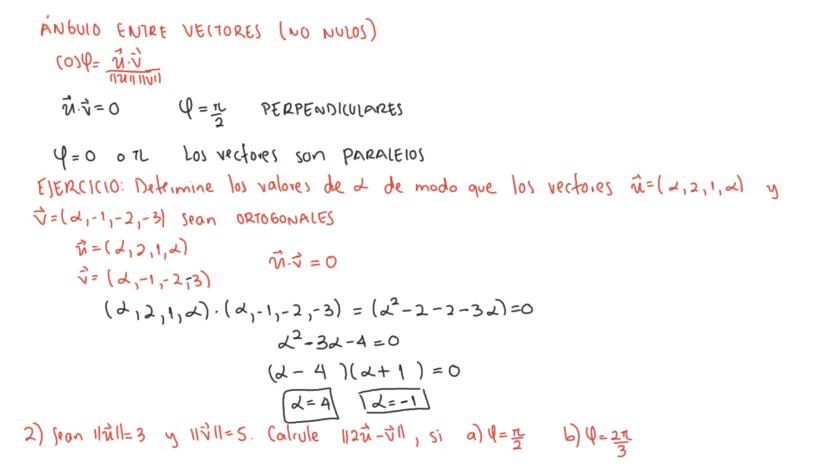 ÁNGULO ENTRE VECTORES (NO NULOS)
cosφ = u⃗·v⃗ / ||u|| ||v||
u⃗·v⃗ = 0 φ = π/2 PERPENDICULARES
φ = 0 o π Los vectores son PARALELOS
EJERCICIO: Determine los valores de α de modo que los vectores u⃗ = (α, 2, 1, α) y
v⃗ = (α, -1, -2, -3) sean ORTOGONALES
u⃗ = (α, 2, 1, α)
u⃗·v⃗ = 0
v⃗ = (α, -1, -2, -3)
(α, 2, 1, α)·(α, -1, -2, -3) = (α² - 2 - 2 - 3α) = 0
α² - 3α - 4 = 0
(α - 4)(α + 1) = 0
α = 4 α = -1
2) Sean ||u⃗|| = 3 y ||v⃗|| = 5. Calcule ||2u⃗ - v⃗||, si a) φ = π/2 b) φ = 2π/3